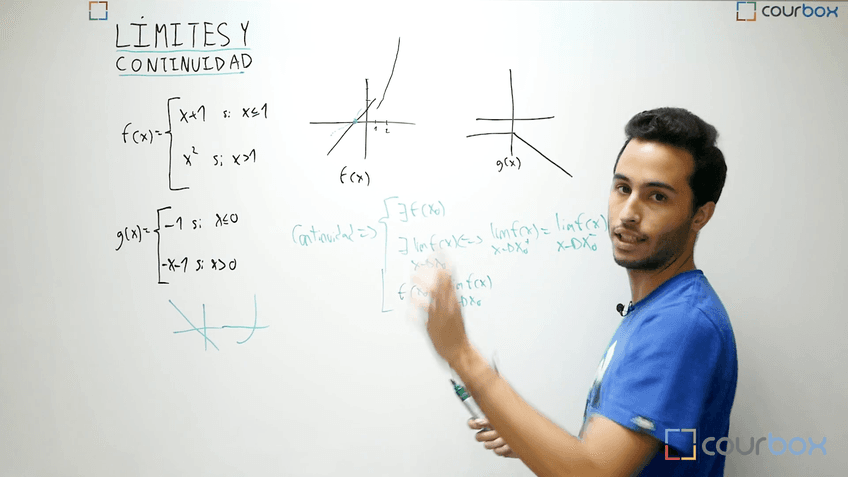 courbox
LÍMITES Y
CONTINUIDAD
f(x)= { x+1 si x≤1
x² si x>1
g(x)= { -1 si x≤0
-x-1 si x>0
1 2
f(x)
g(x)
Continuidad => { ∃ f(x₀)
∃ lim f(x) <=> lim f(x) = lim f(x)
x→x₀⁺ x→x₀⁻
lim f(x)
x₀
courbox